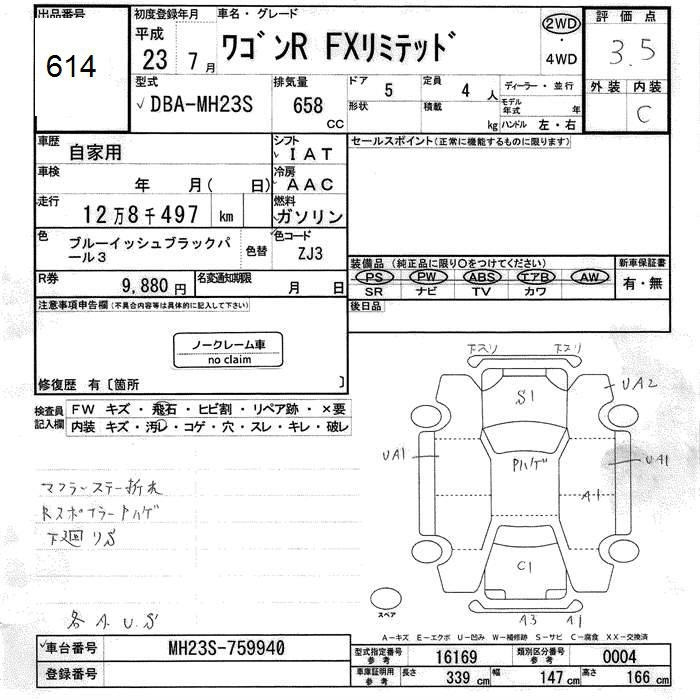 出品番号
614
初度登録年月
平成
23 7 月
車名・グレード
ワゴンR FXリミテッド
2WD
・
4WD
評価点
3.5
外装 内装
C
型式
DBA-MH23S
排気量
658
cc
ドア 5
形状
定員 4 人
積載 kg
ディーラー・並行
モデル年式 年
ハンドル 左・右
車歴
自家用
シフト
IAT
セールスポイント(正常に機能するものに限ります)
車検
年 月( 日)
冷房
AAC
走行
12万8千497 km
燃料
ガソリン
色
ブルーイッシュブラックパール3
色替
色コード
ZJ3
装備品 (純正品に限り○をつけてください)
新車保証書
PS PW ABS エアB AW
有・無
SR ナビ TV カワ
R券
9,880 円
名変通知期限
月 日
後日品
注意事項申告欄(不具合内容等は具体的に記入して下さい)
ノークレーム車
no claim
修復歴 有〔箇所 〕
検査員記入欄
FW キズ・飛石・ヒビ割・リペア跡・×要
内装 キズ・汚レ・コゲ・穴・スレ・キレ・破レ
下スリ 下スリ
S1
UA2
UA1
Pハゲ
UA1
A1
C1
A3 A1
スペア
マフラーステー折れ
Rスポイラー Pハゲ
下廻りS
各A.U.S
A-キズ E-エクボ U-凹み W-補修跡 S-サビ C-腐食 XX-交換済
車台番号
MH23S-759940
登録番号
型式指定番号
参考
16169
類別区分番号
参考
0004
車庫証明用
参考
長さ 339 cm 幅 147 cm 高さ 166 cm